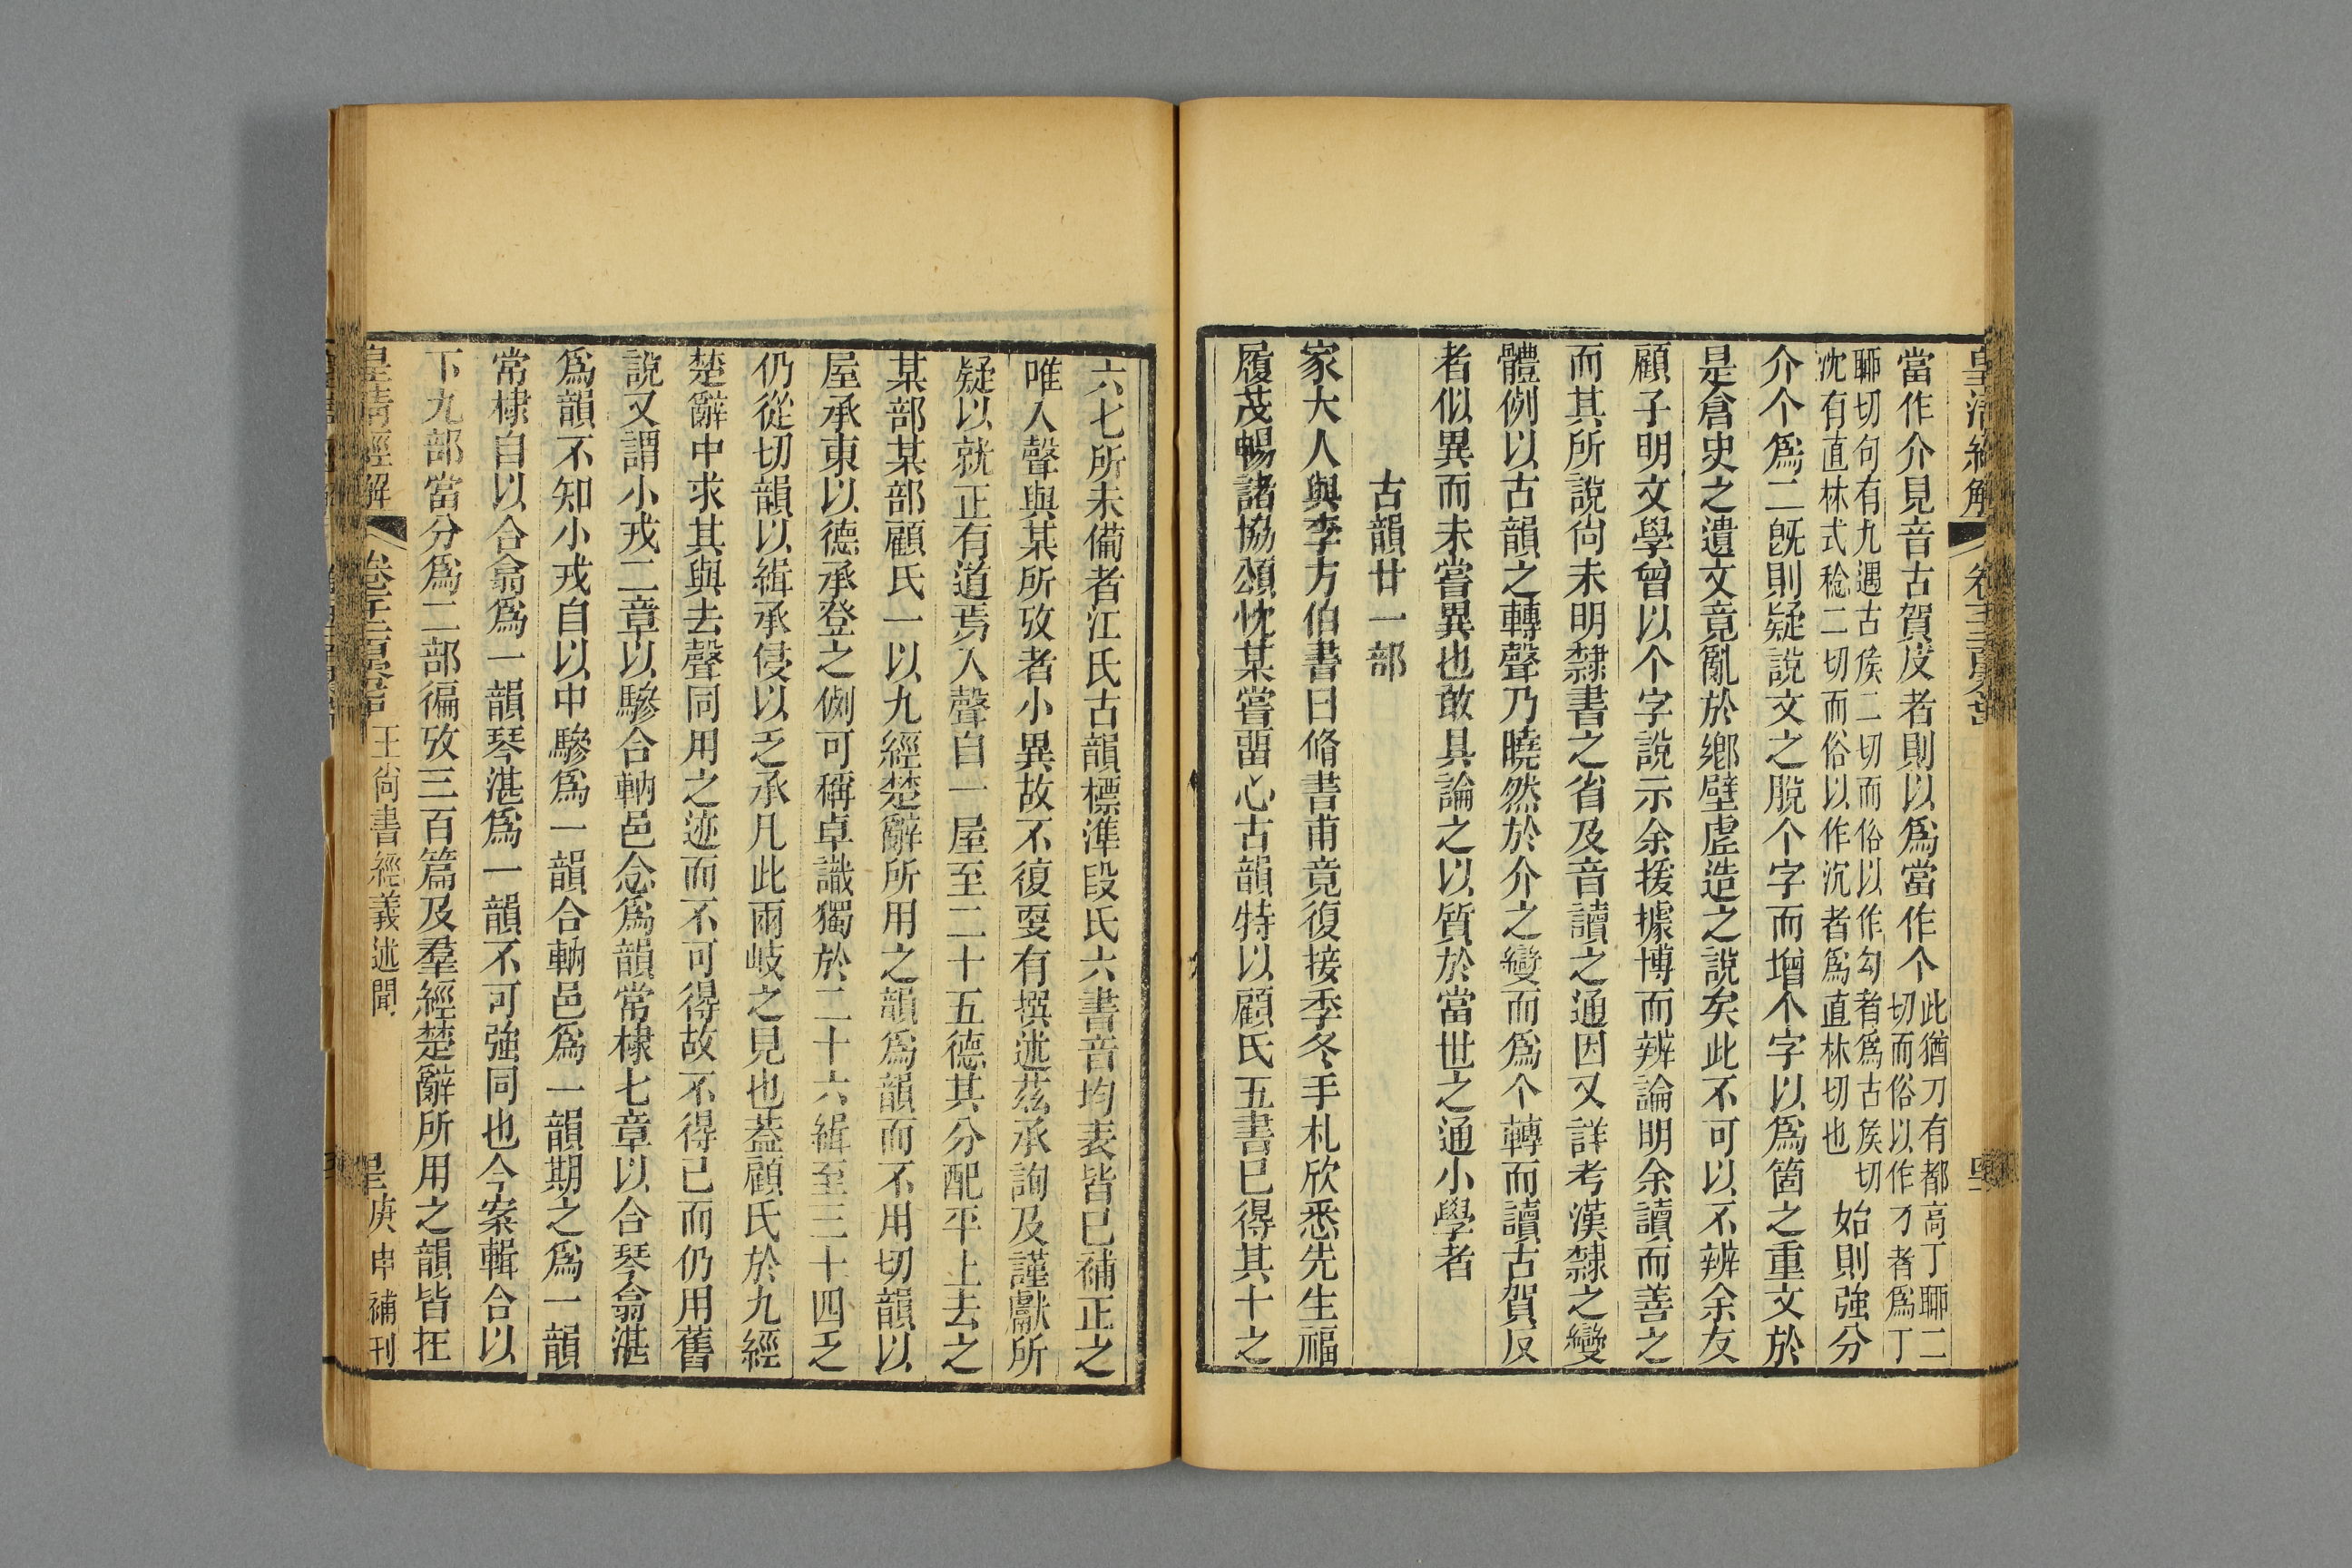 皇清經解
當作介見音古賀反者則以爲當作个此猶刀有都高丁聊二
切而俗以作刁者爲丁
聊切句有九遇古侯二切而俗以作勾者爲古侯切
沈有直林式稔二切而俗以作沉者爲直林切也始則強分
介个爲二旣則疑說文之脫个字而增个字以爲箇之重文於
是倉史之遺文竟亂於鄉壁虛造之說矣此不可以不辨余友
顧子明文學曾以个字說示余援據博而辨論明余讀而善之
而其所說尙未明隸書之省及音讀之通因又詳考漢隸之變
體例以古韻之轉聲乃曉然於介之變而爲个轉而讀古賀反
者似異而未嘗異也敢具論之以質於當世之通小學者
古韻廿一部
家大人與李方伯書曰脩書甫竟復接季冬手札欣悉先生福
履茂暢諸協頌忱某嘗畱心古韻特以顧氏五書已得其十之
六七所未備者江氏古韻標準段氏六書音均表皆已補正之
唯入聲與某所攷者小異故不復更有撰述茲承詢及謹獻所
疑以就正有道焉入聲自一屋至二十五德其分配平上去之
某部某部顧氏一以九經楚辭所用之韻爲韻而不用切韻以
屋承東以德承登之例可稱卓識獨於二十六緝至三十四乏
仍從切韻以緝承侵以乏承凡此兩岐之見也葢顧氏於九經
楚辭中求其與去聲同用之迹而不可得故不得已而仍用舊
說又謂小戎二章以驂合軜邑念爲韻常棣七章以合琴翕湛
爲韻不知小戎自以中驂爲一韻合軜邑爲一韻期之爲一韻
常棣自以合翕爲一韻琴湛爲一韻不可強同也今案輯合以
下九部當分爲二部徧攷三百篇及羣經楚辭所用之韻皆在
皇清經解
王尙書經義述聞
庚申補刊